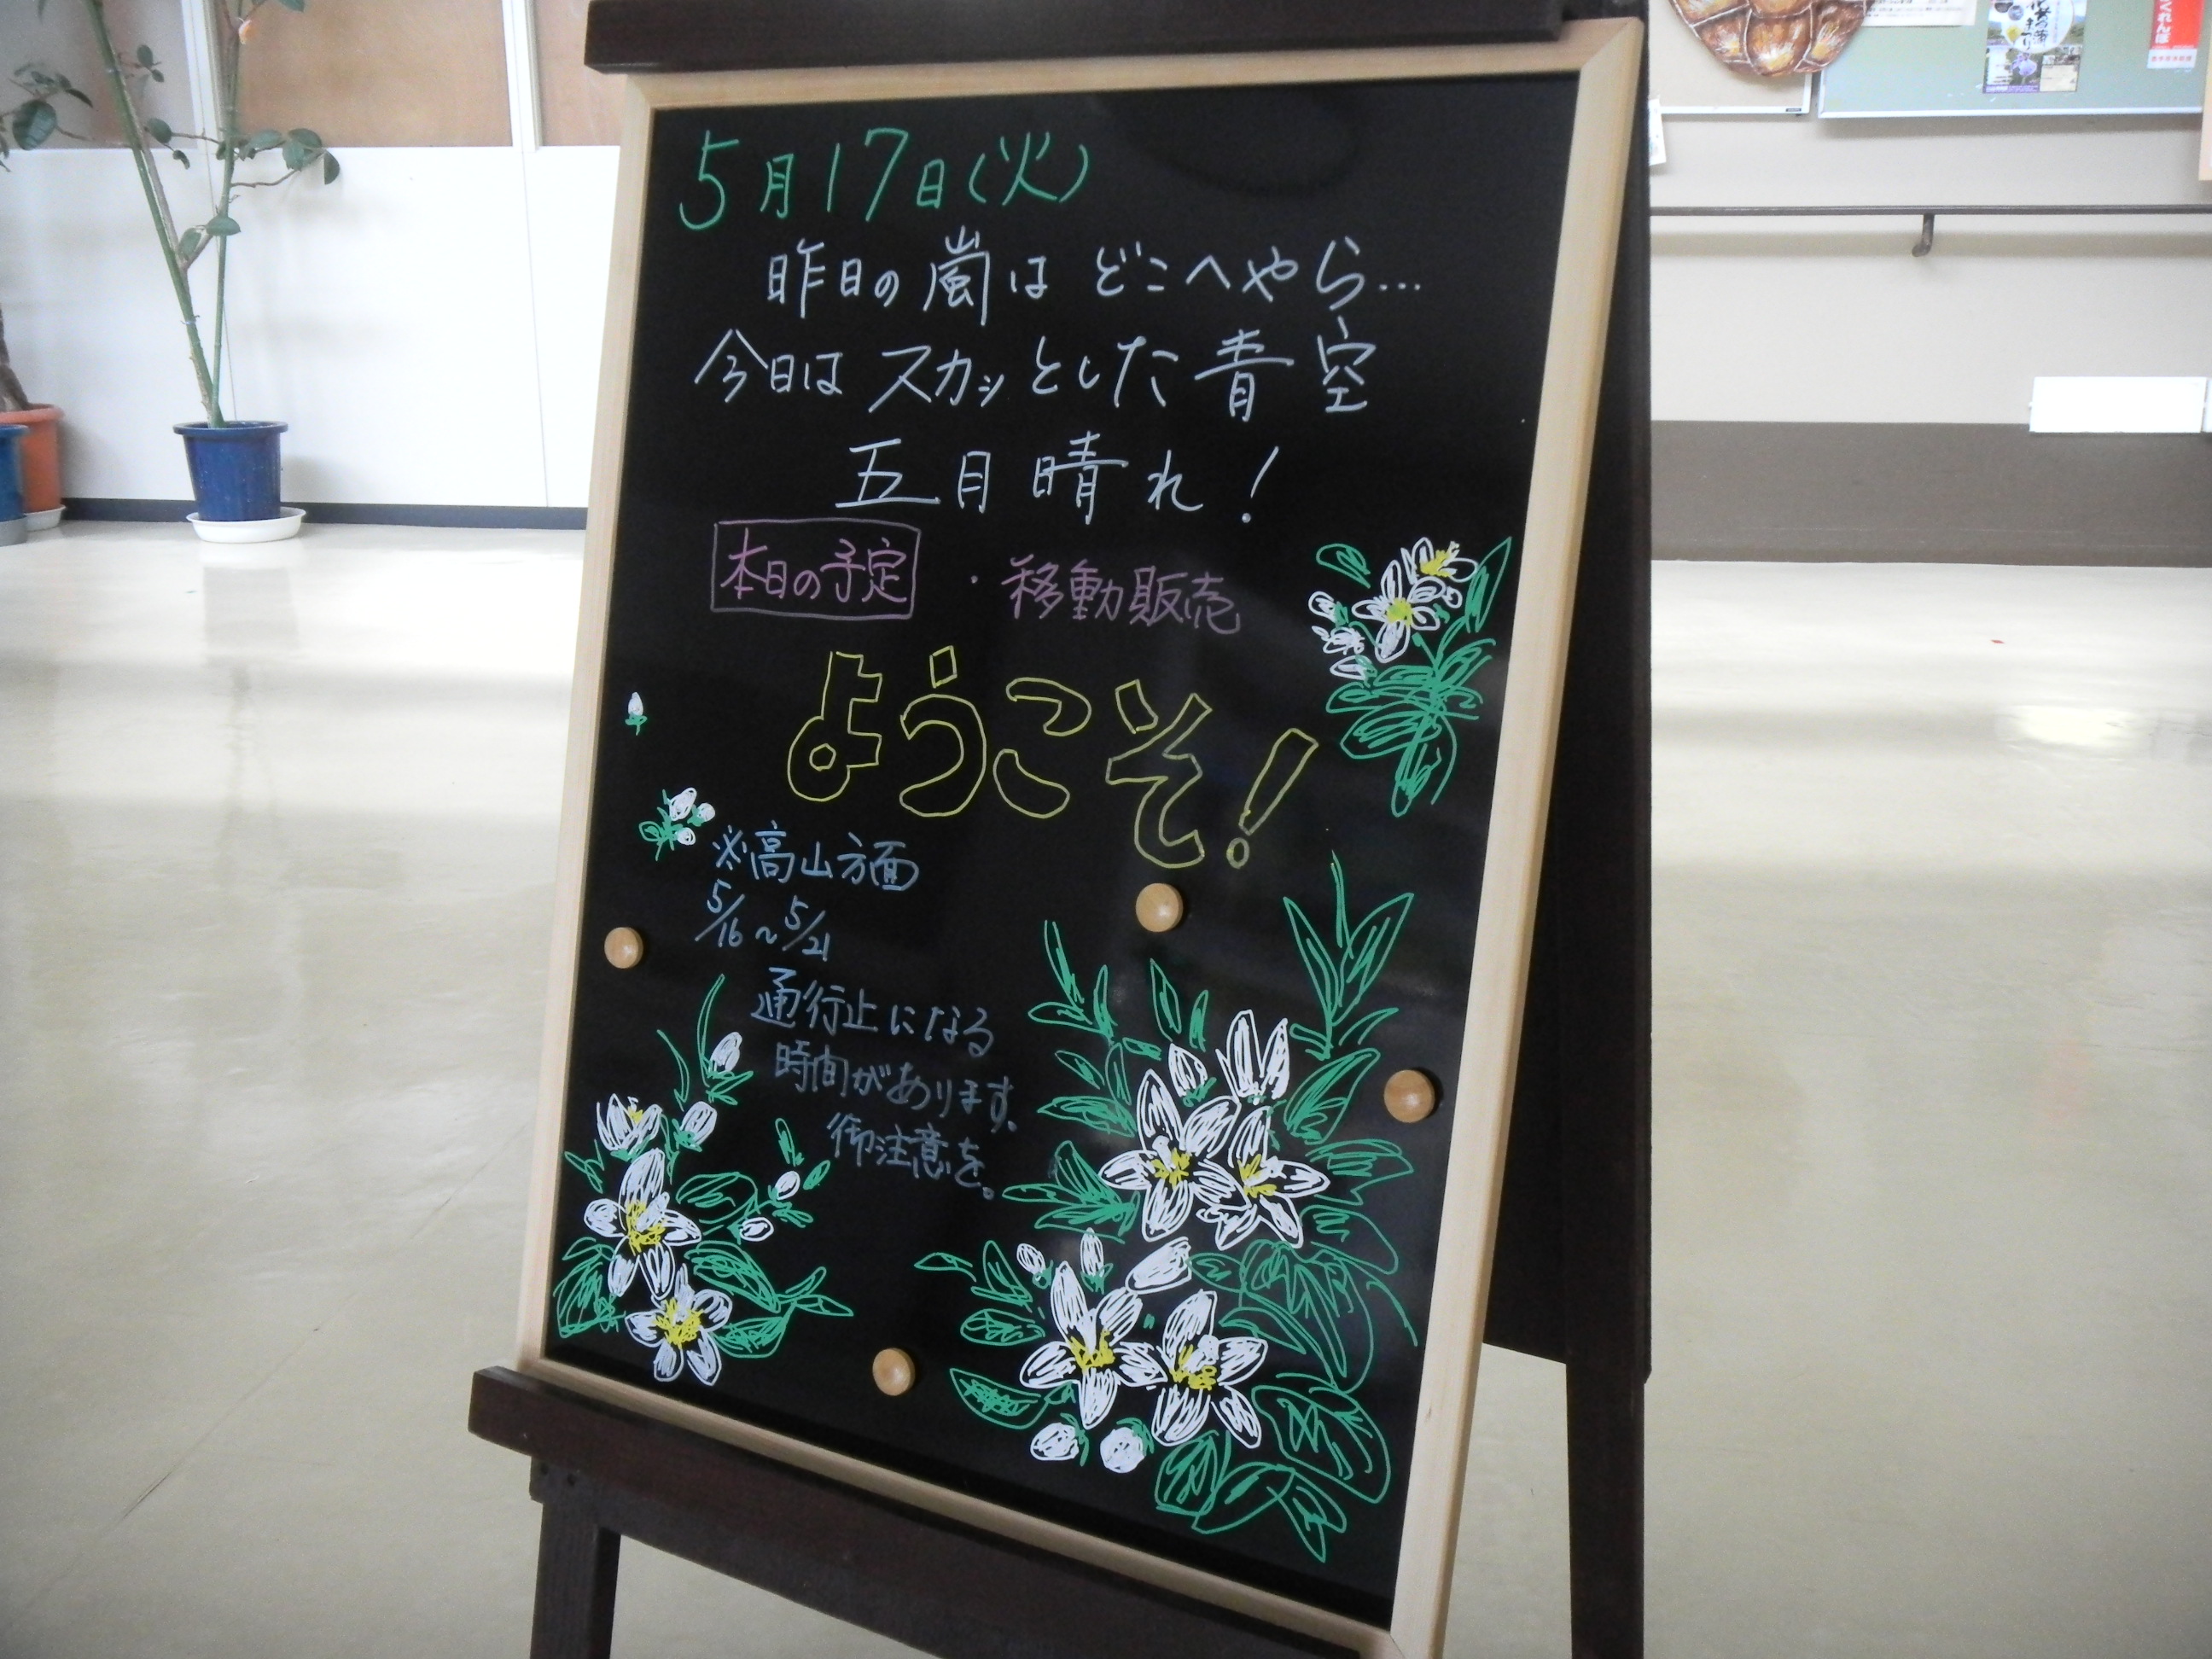 5月17日(火)
昨日の嵐は どこへやら…
今日は スカッとした 青空
五月晴れ!
本日の予定 ・移動販売
ようこそ!
※高山方面
5/16〜5/21
通行止になる
時間があります。
御注意を。
くれんぼ